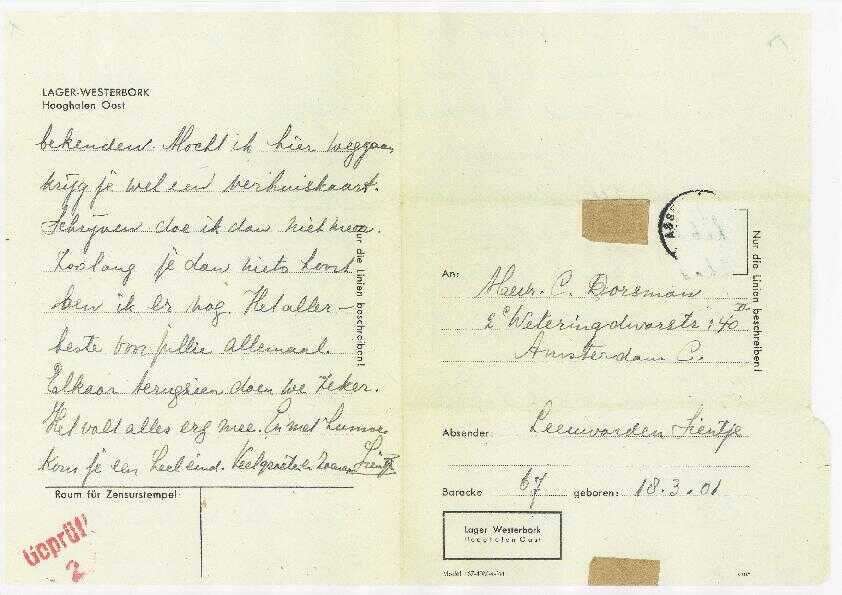 LAGER-WESTERBORK
Hooghalen Oost
bekenden. Mocht ik hier weggaan
krijg je wel een verhuiskaart.
Schrijven doe ik dan niet meer.
Zoolang je dan niets hoort
ben ik er nog. Het aller-
beste voor jullie allemaal.
Elkaar terugzien doen we zeker.
Het valt alles erg mee. En met humor
kom je een heel eind. Veel groeten Sientje
Nur die Linien beschreiben!
Raum für Zensurstempel
Geprüft
2
An: Mevr. C. Dorsman
2e Weteringdwarsstr: 40 II
Amsterdam C.
Nur die Linien beschreiben!
Absender: Leeuwarden Sientje
Baracke 67 geboren: 18.3.01
Lager Westerbork
Hooghalen Oost
Model